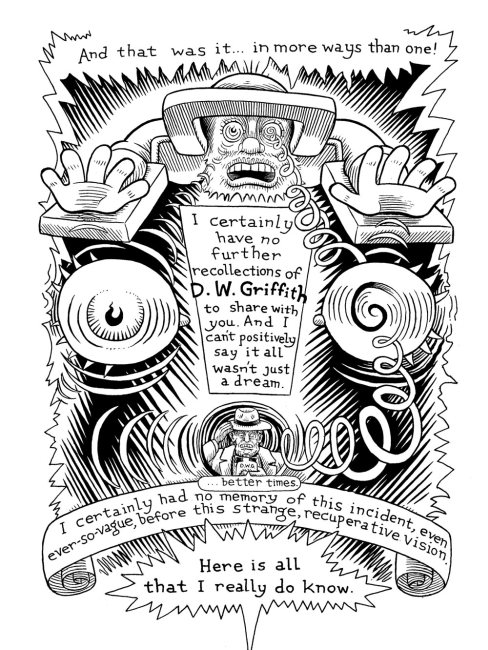 And that was it... in more ways than one!
I certainly
have no
further
recollections of
D. W. Griffith
to share with
you. And I
can't positively
say it all
wasn't just
a dream.
D.W.G.
...better times.
I certainly had no memory of this incident, even
ever-so-vague, before this strange, recuperative vision.
Here is all
that I really do know.